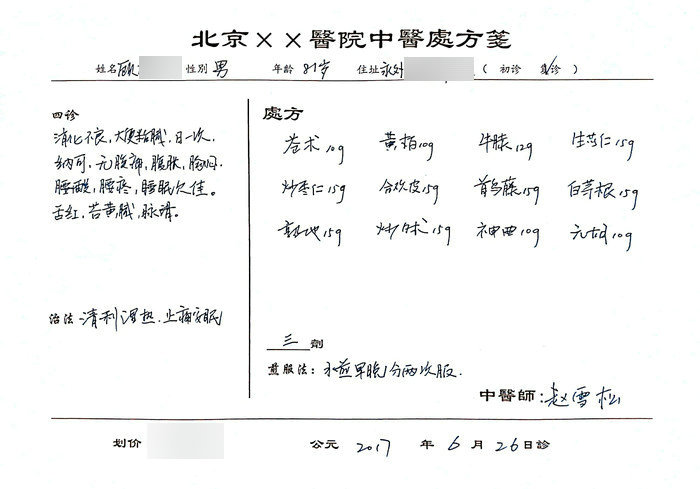 北京××醫院中醫處方箋
姓名 欧 性別 男 年齡 81岁 住址 永外 ( 初诊 复诊 )
四诊 處方
消化不良,大便黏腻,日一次,
纳可,无腹痛,腹胀,胸闷,
腰酸,腰疼,睡眠欠佳。
舌红,苔黄腻,脉滑。
苍术10g 黄柏10g 牛膝12g 生苡仁15g
炒枣仁15g 合欢皮15g 首乌藤15g 白茅根15g
熟地15g 炒白术15g 神曲10g 元胡10g
治法:清利湿热,止痛安眠
三 劑
煎服法:水煎早晚分两次服.
中醫師:赵雪松
划价 公元 2017 年 6 月 26 日診